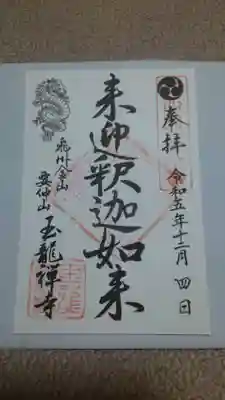 奉拝
令和五年十二月四日
来迎釈迦如来
飛州金山
玉龍禅寺